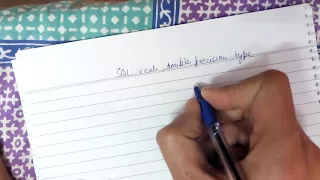 real, double precision type